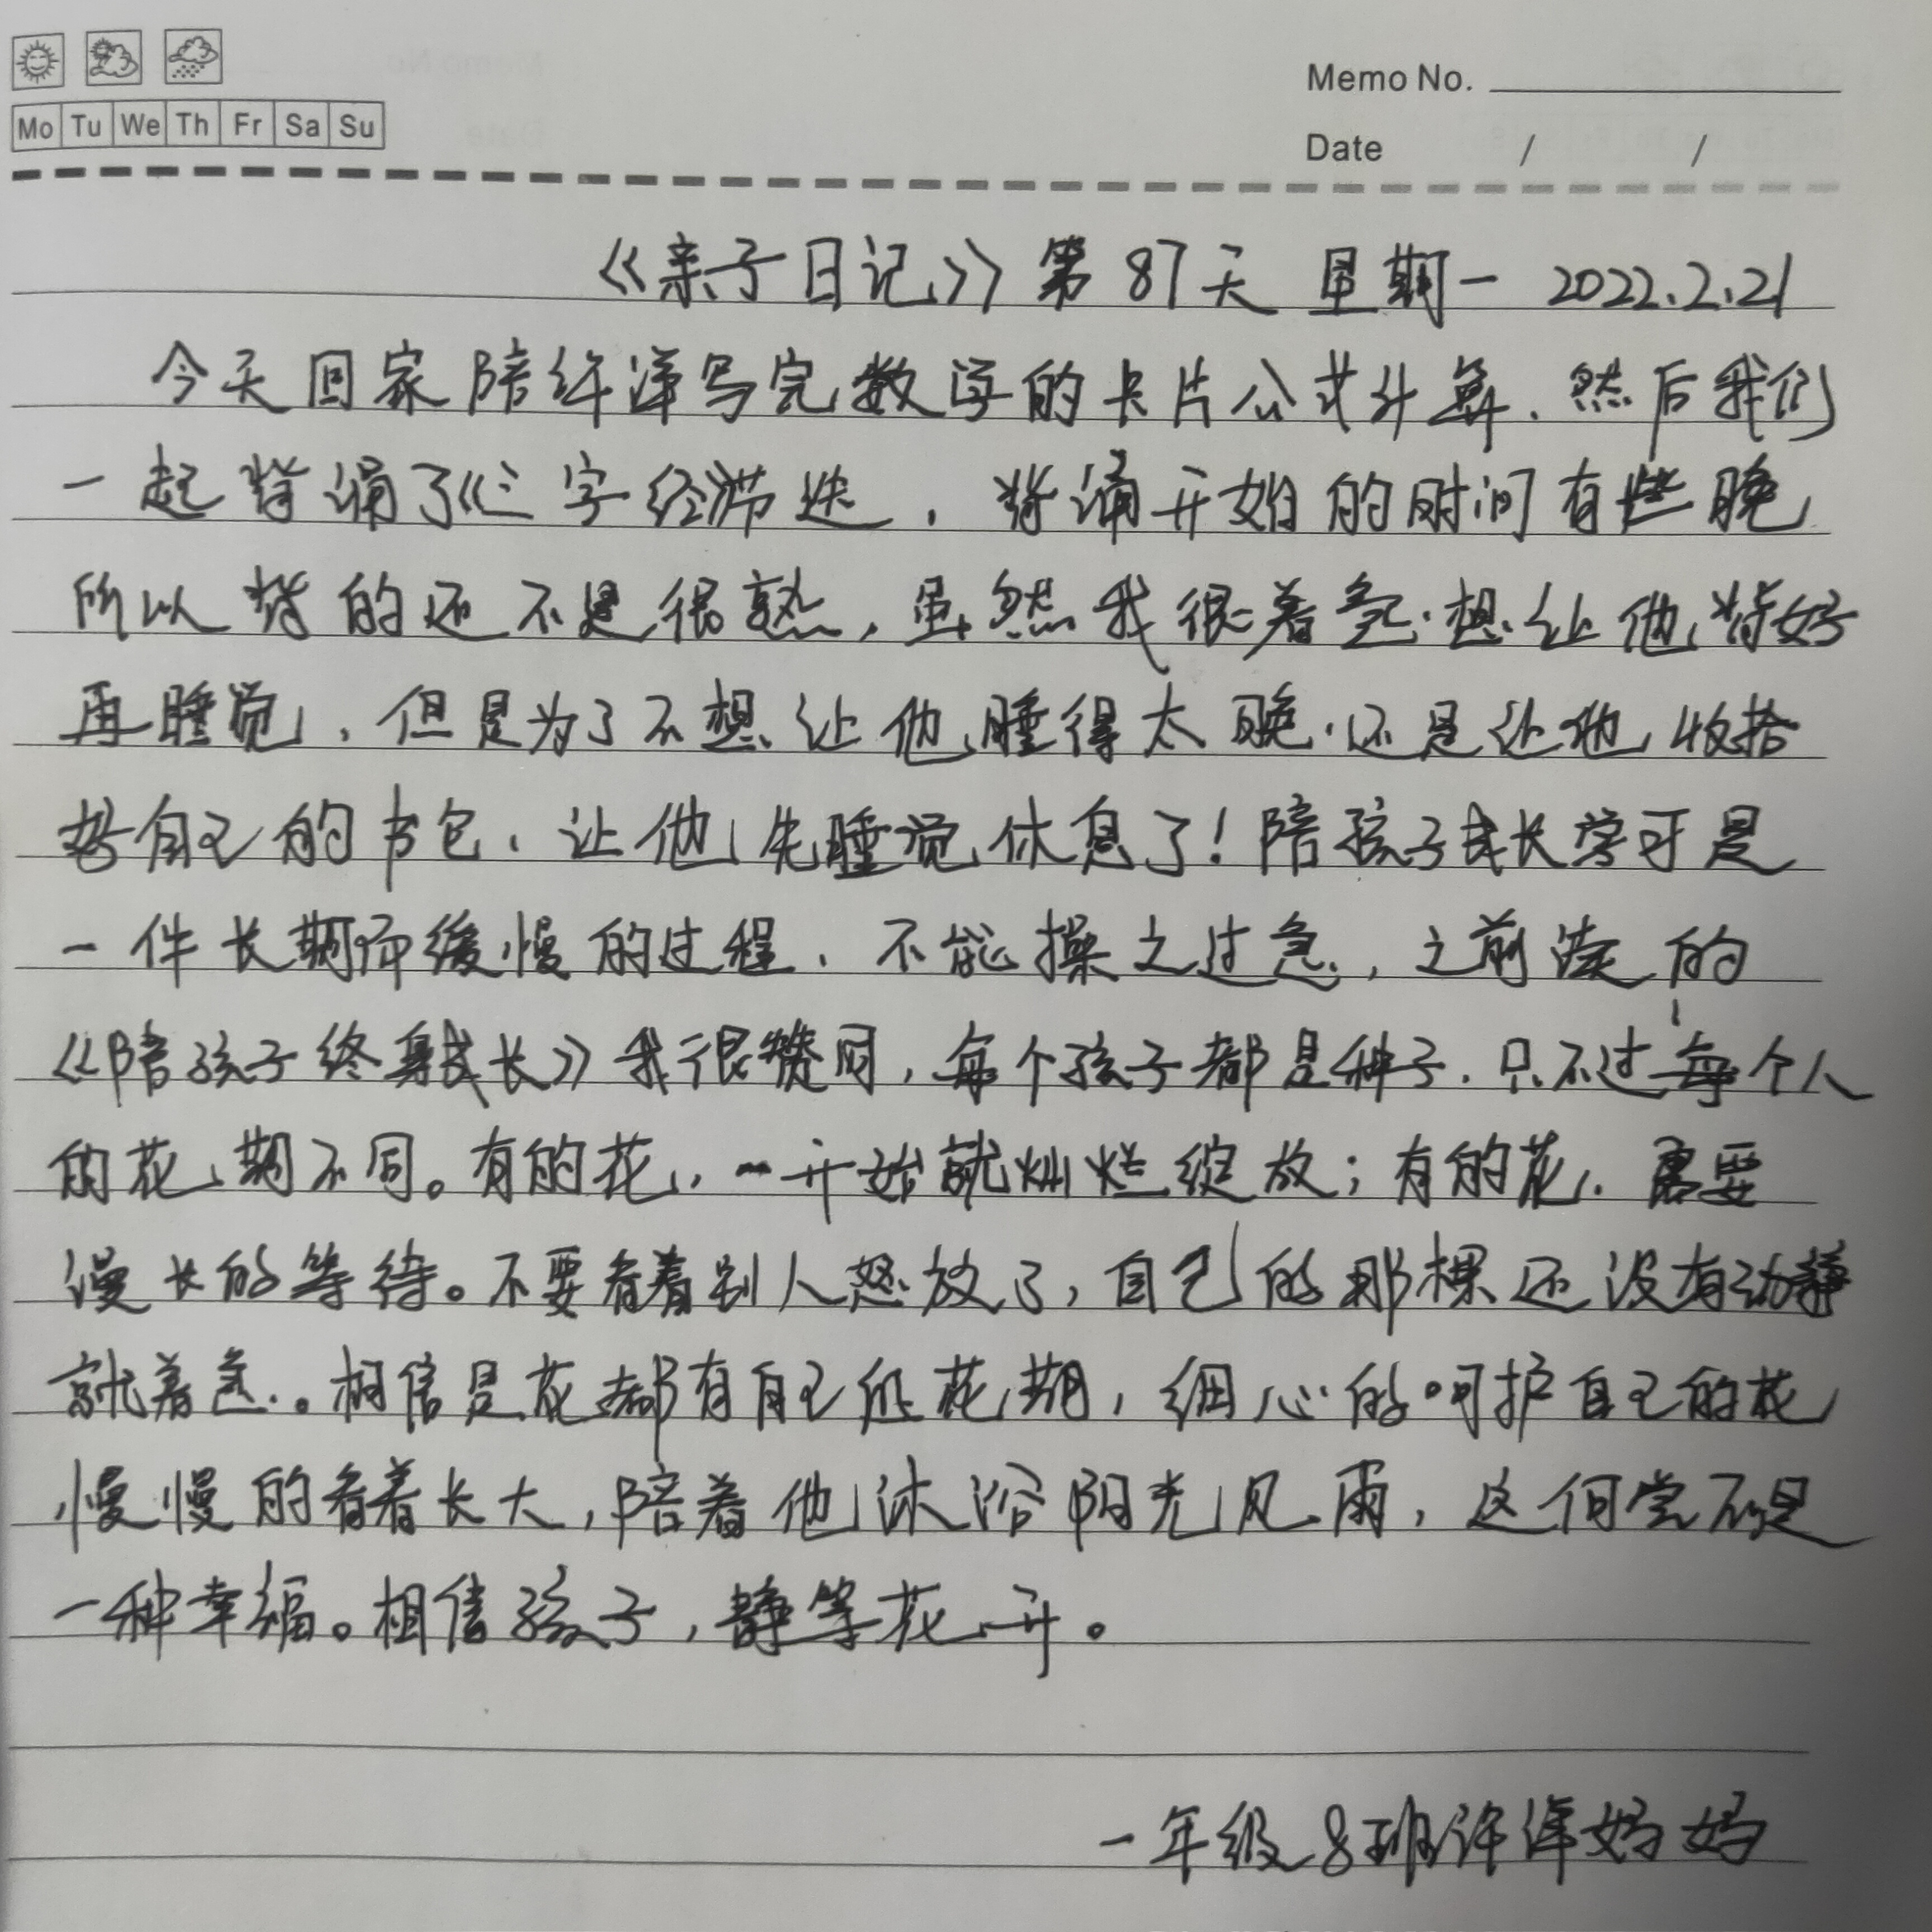 Memo No.
Mo Tu We Th Fr Sa Su
Date / /
《亲子日记》第87天 星期一 2022.2.21
今天回家陪许泽写完数学的卡片公式计算、然后我们
一起背诵了《三字经节选，背诵开始的时间有些晚
所以背的还不是很熟，虽然我很着急.想让他背好
再睡觉，但是为了不想让他睡得太晚.还是让他收拾
好自己的书包、让他先睡觉休息了！陪孩子成长学可是
一件长期而缓慢的过程、不能操之过急，之前读的
《陪孩子终身成长》我很赞同，每个孩子都是种子.只不过每个人
的花期不同。有的花，一开始就灿烂绽放；有的花，需要
漫长的等待。不要看着别人怒放了，自己的那棵还没有动静
就着急.。相信是花都有自己的花期，细心的呵护自己的花
慢慢的看着长大，陪着他沐浴阳光风雨，这何尝不是
一种幸福。相信孩子，静等花开。
一年级8班许泽妈妈